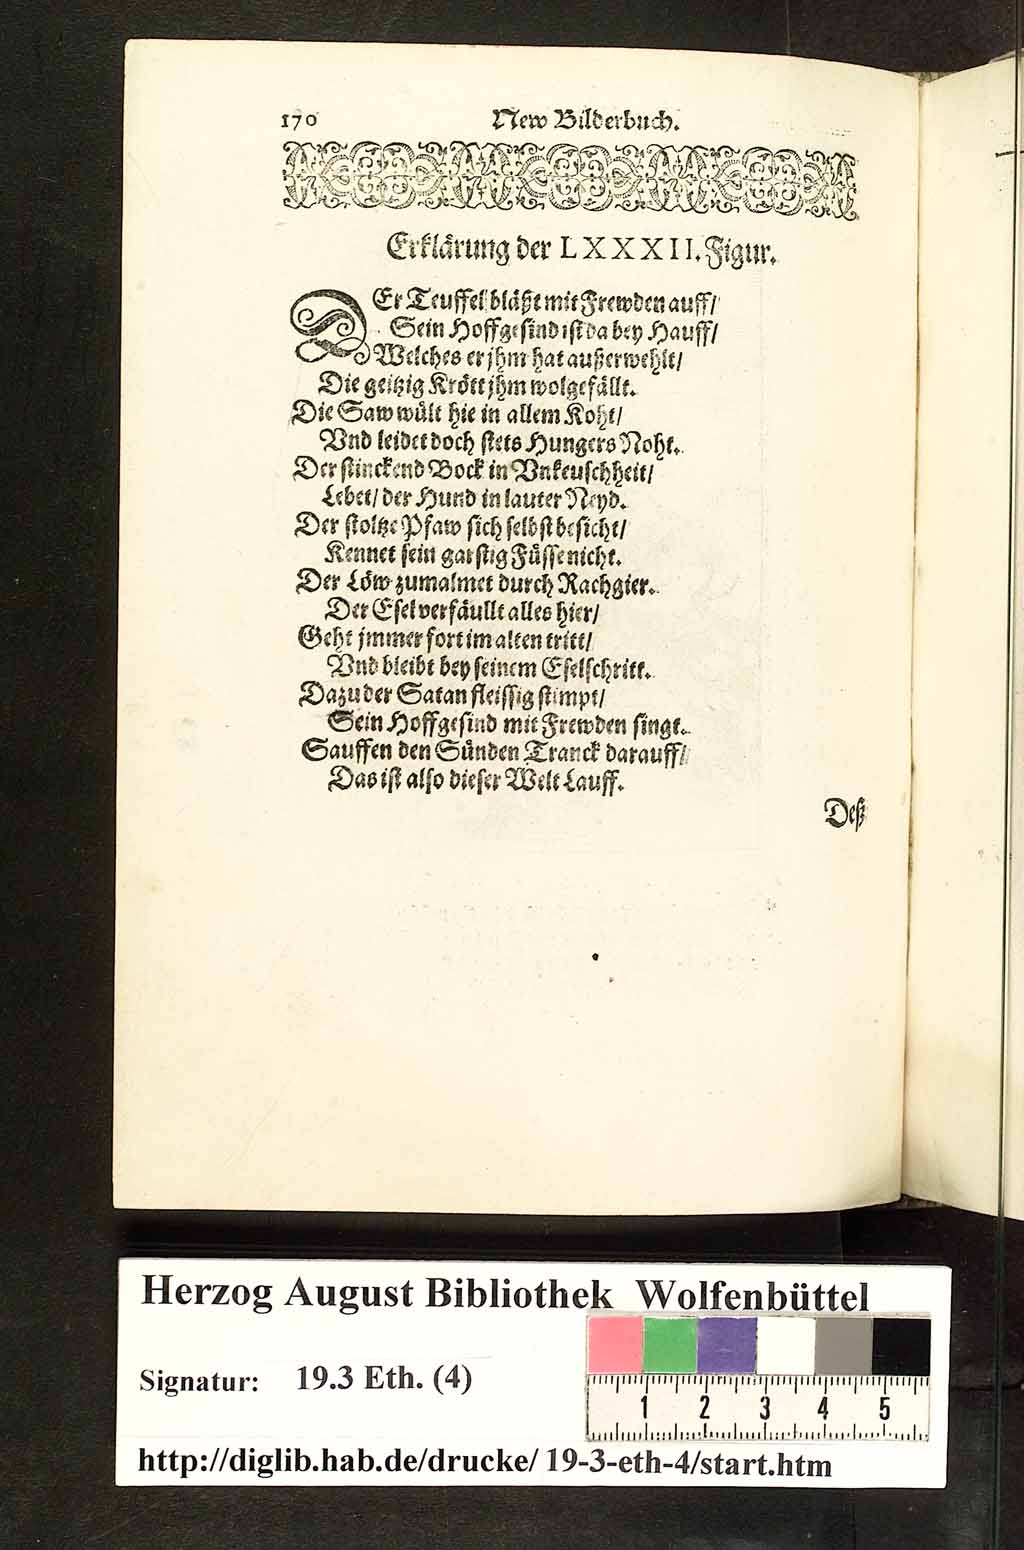 170 New Bilderbuch.
Erklärung der LXXXII. Figur.
DEr Teuffel bläßt mit Frewden auff/
Sein Hoffgesind ist da bey Hauff/
Welches er jhm hat außerwehlt/
Die geitzig Krött jhm wolgefällt.
Die Saw wült hie in allem Koht/
Vnd leidet doch stets Hungers Noht.
Der stinckend Bock in Vnkeuschheit/
Lebet/ der Hund in lauter Neyd.
Der stoltze Pfaw sich selbst besicht/
Kennet sein garstig Füsse nicht.
Der Löw zumalmet durch Rachgier.
Der Esel verfäullt alles hier/
Geht jmmer fort im alten tritt/
Vnd bleibt bey seinem Eselschritt.
Dazu der Satan fleissig stimpt/
Sein Hoffgesind mit Frewden singt.
Sauffen den Sünden Tranck darauff/
Das ist also dieser Welt Lauff.
Deß
Herzog August Bibliothek Wolfenbüttel
Signatur: 19.3 Eth. (4)
1 2 3 4 5
http://diglib.hab.de/drucke/ 19-3-eth-4/start.htm